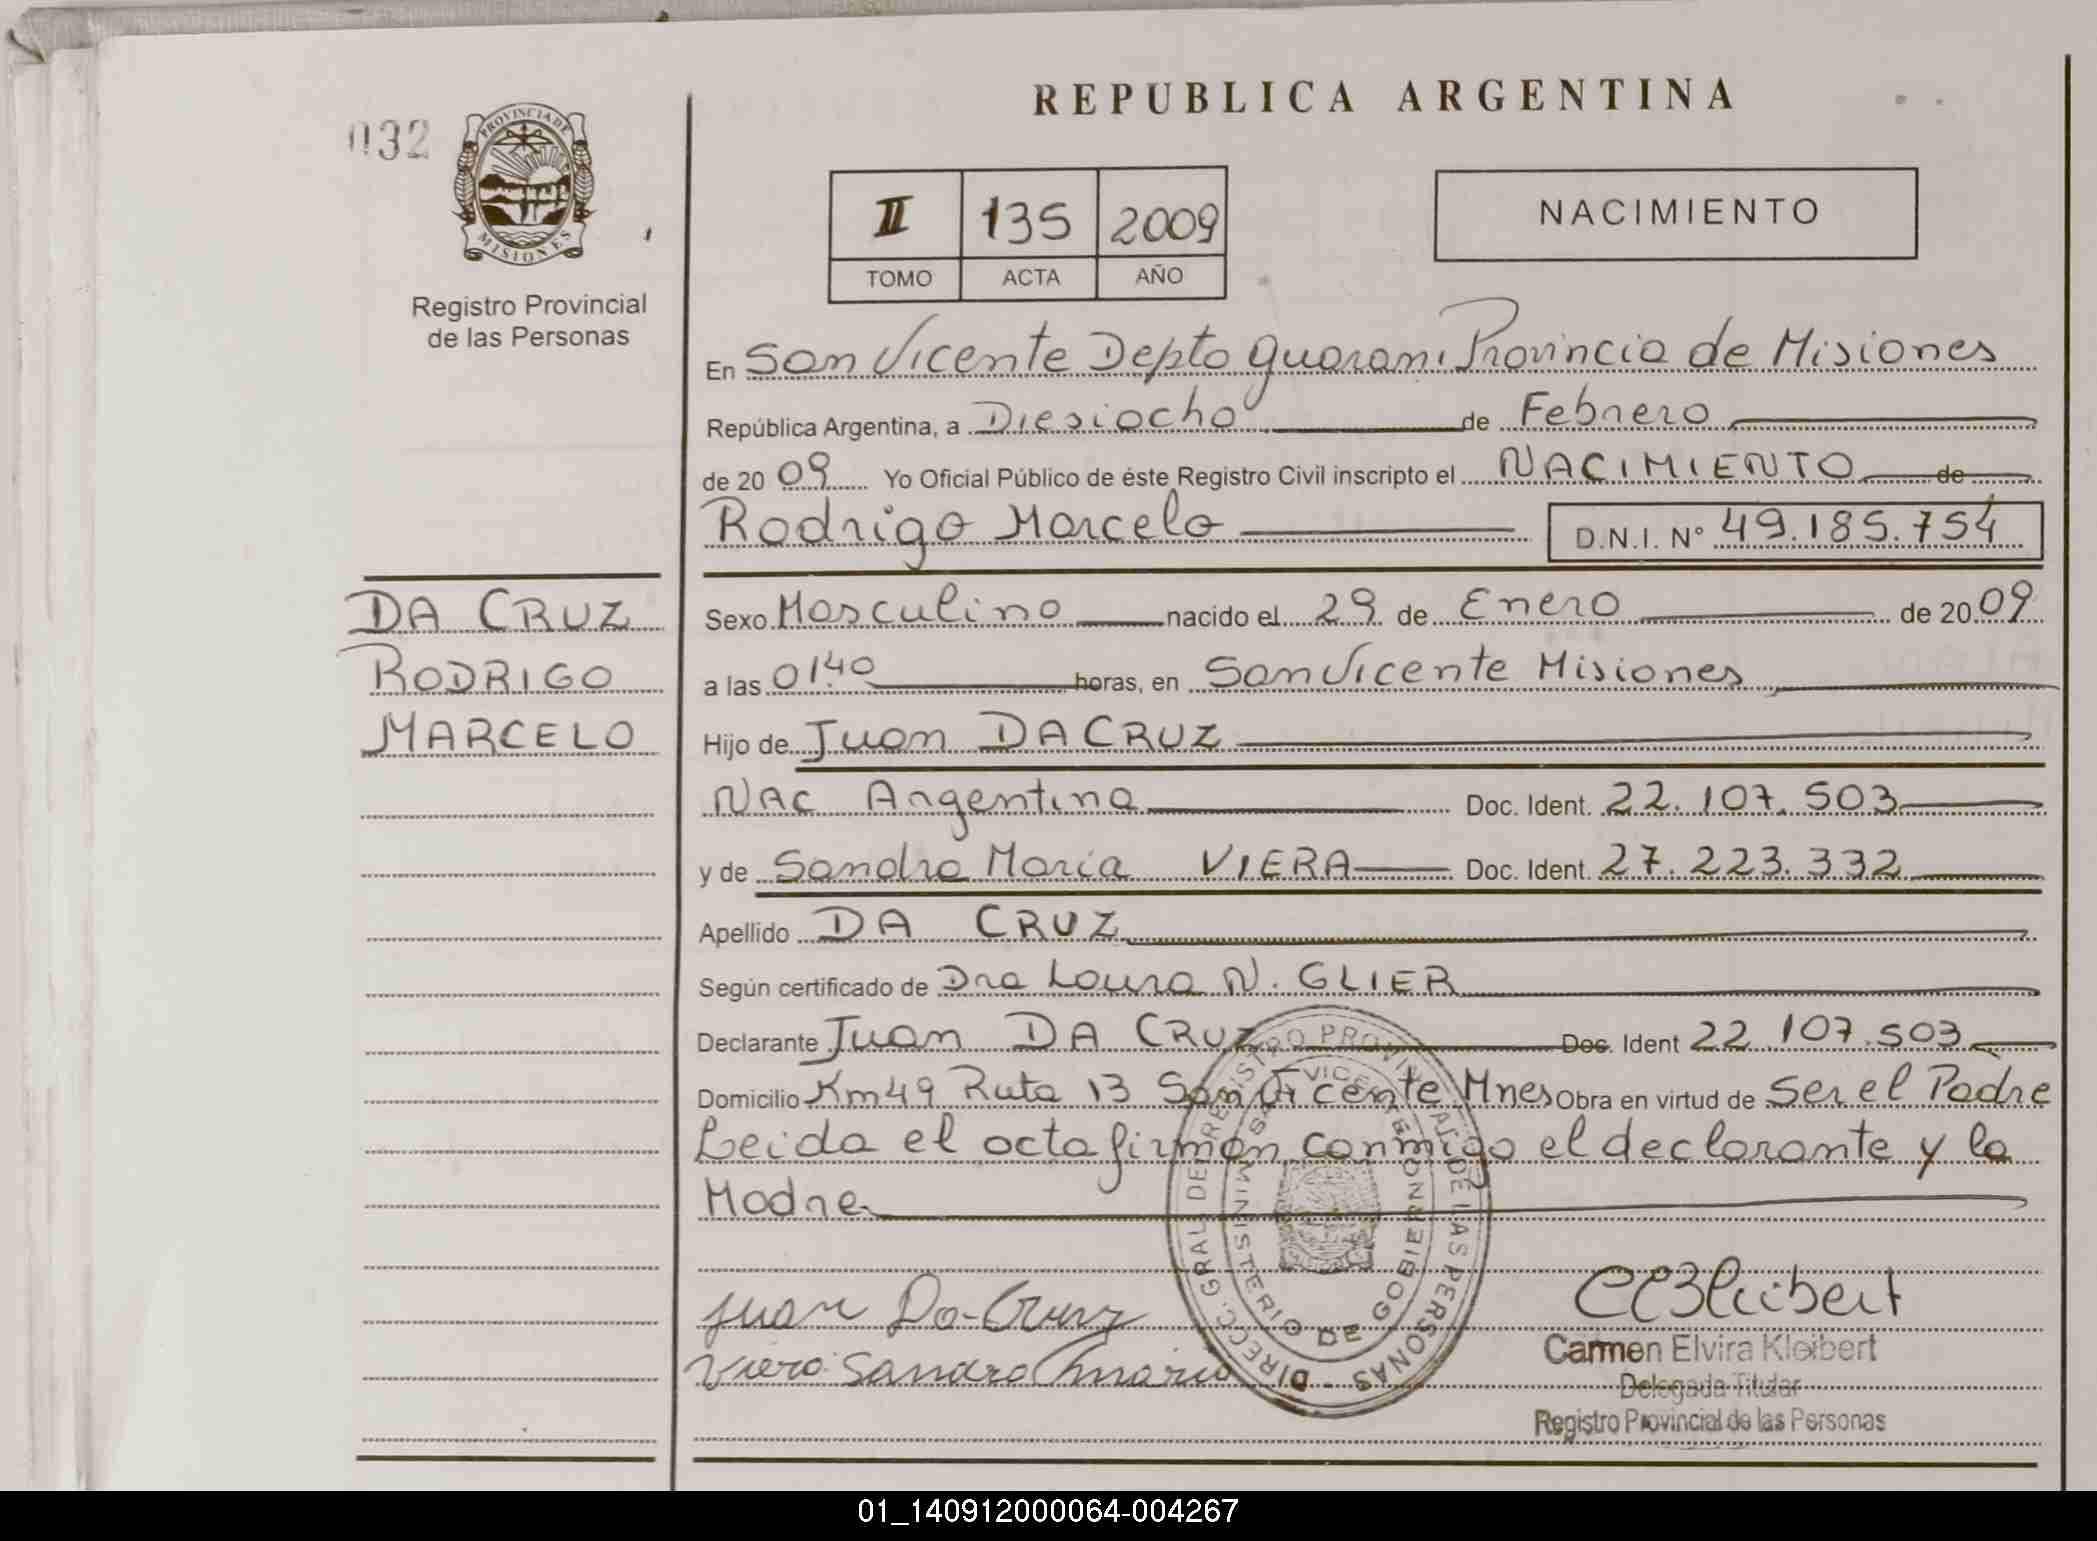 032
PROVINCIA DE
MISIONES
Registro Provincial
de las Personas
REPUBLICA ARGENTINA
II 135 2009
TOMO ACTA AÑO
NACIMIENTO
En San Vicente Depto Guarani Provincia de Misiones
República Argentina, a Diesiocho de Febrero
de 20 09 Yo Oficial Público de éste Registro Civil inscripto el NACIMIENTO de
Rodrigo Marcelo D.N.I. N° 49.185.754
DA CRUZ
RODRIGO
MARCELO
Sexo Masculino nacido el 29 de Enero de 20 09
a las 0140 horas, en San Vicente Misiones
Hijo de Juan DA CRUZ
Nac Argentina Doc. Ident. 22.107.503
y de Sandra Maria VIERA Doc. Ident. 27.223.332
Apellido DA CRUZ
Según certificado de Dra Laura N. GLIER
Declarante Juan DA CRUZ Doc. Ident 22.107.503
Domicilio Km 49 Ruta 13 San Vicente Mnes Obra en virtud de Ser el Padre
Leida el acta firman conmigo el declarante y la
Madre
Juan Da-Cruz
Viera Sandra Maria
DIRECC. GRAL. DE REGISTRO PROVINCIAL DE LAS PERSONAS
MINISTERIO DE GOBIERNO
S. VICENTE
Carmen Elvira Kleibert
Delegada Titular
Registro Provincial de las Personas
01_140912000064-004267